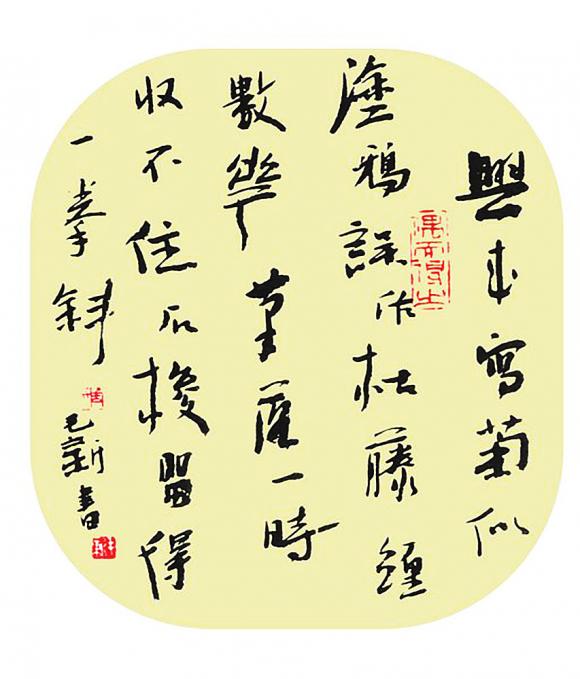 興来寫菊似
塗鴉誤作枯藤纏
數華筆落一時
收不住石棱留得
一拳斜
新書